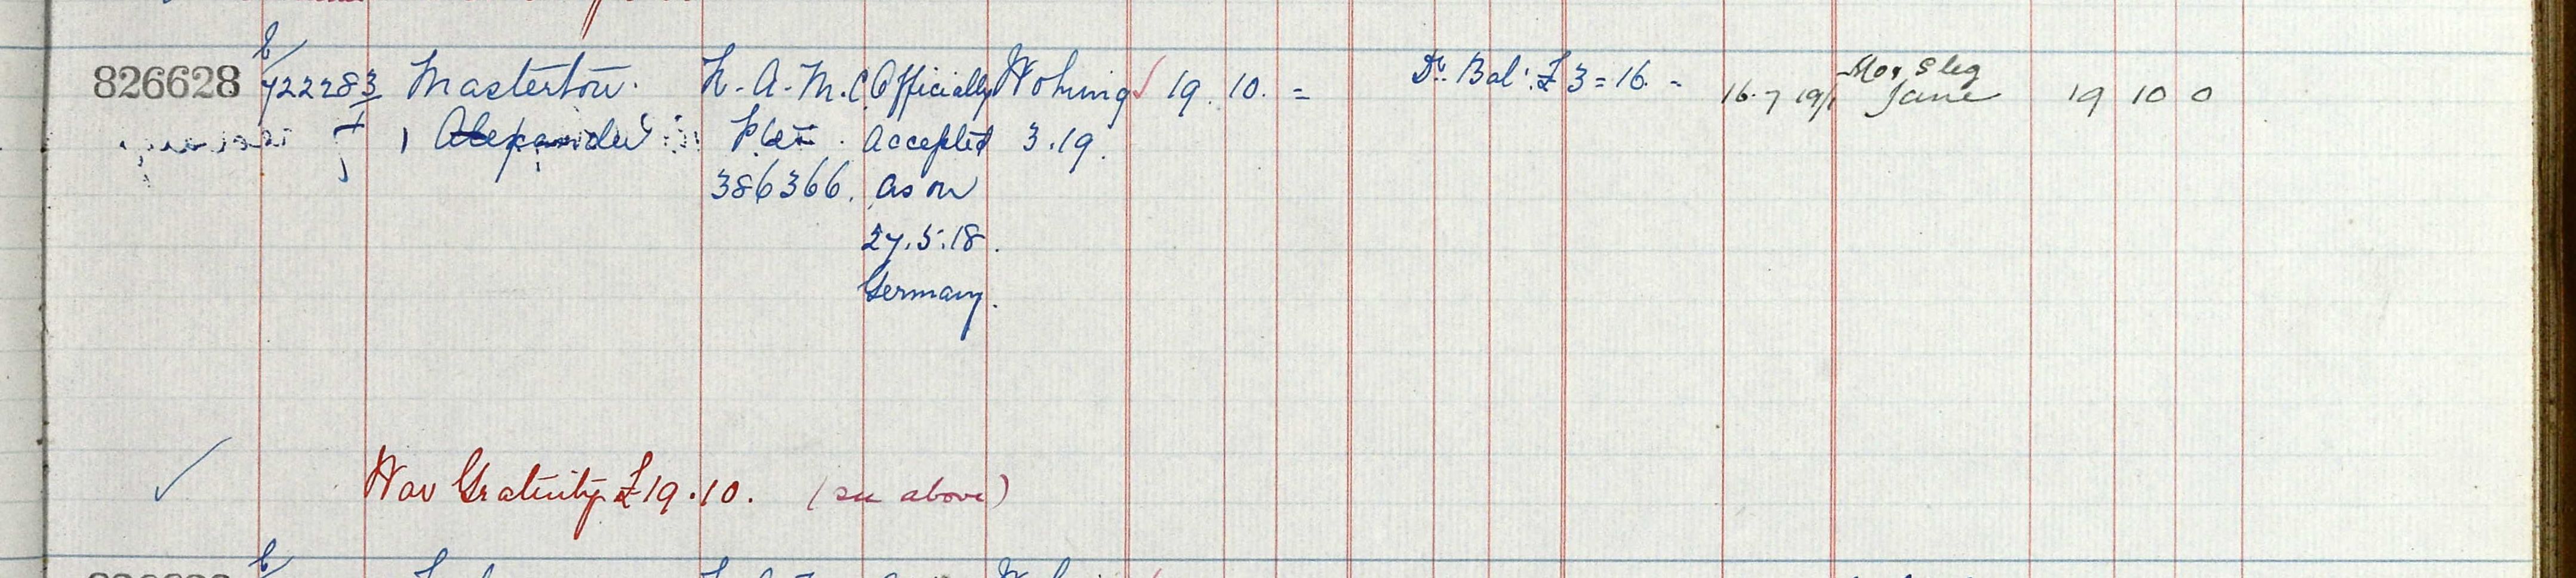 826628 E/ 722283 Masterton. R.A.M.C. Officially Woking 19. 10. = Dr. Bal: £3=16.- 16.7 19/ Mor, s leg 19 10 0
1 Alexander Pte accepted 3.19. Jane
386366. as on
27.5.18.
Germany.
War Gratuity £19.10. (see above)
E/